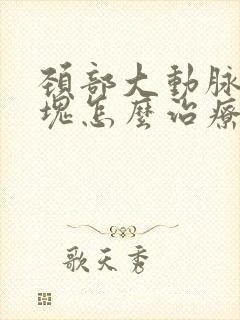 頚部大動脈
塊怎麼治療
歌天秀